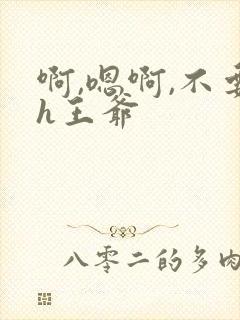 啊,嗯啊,不
h王爷
八零二的多肉